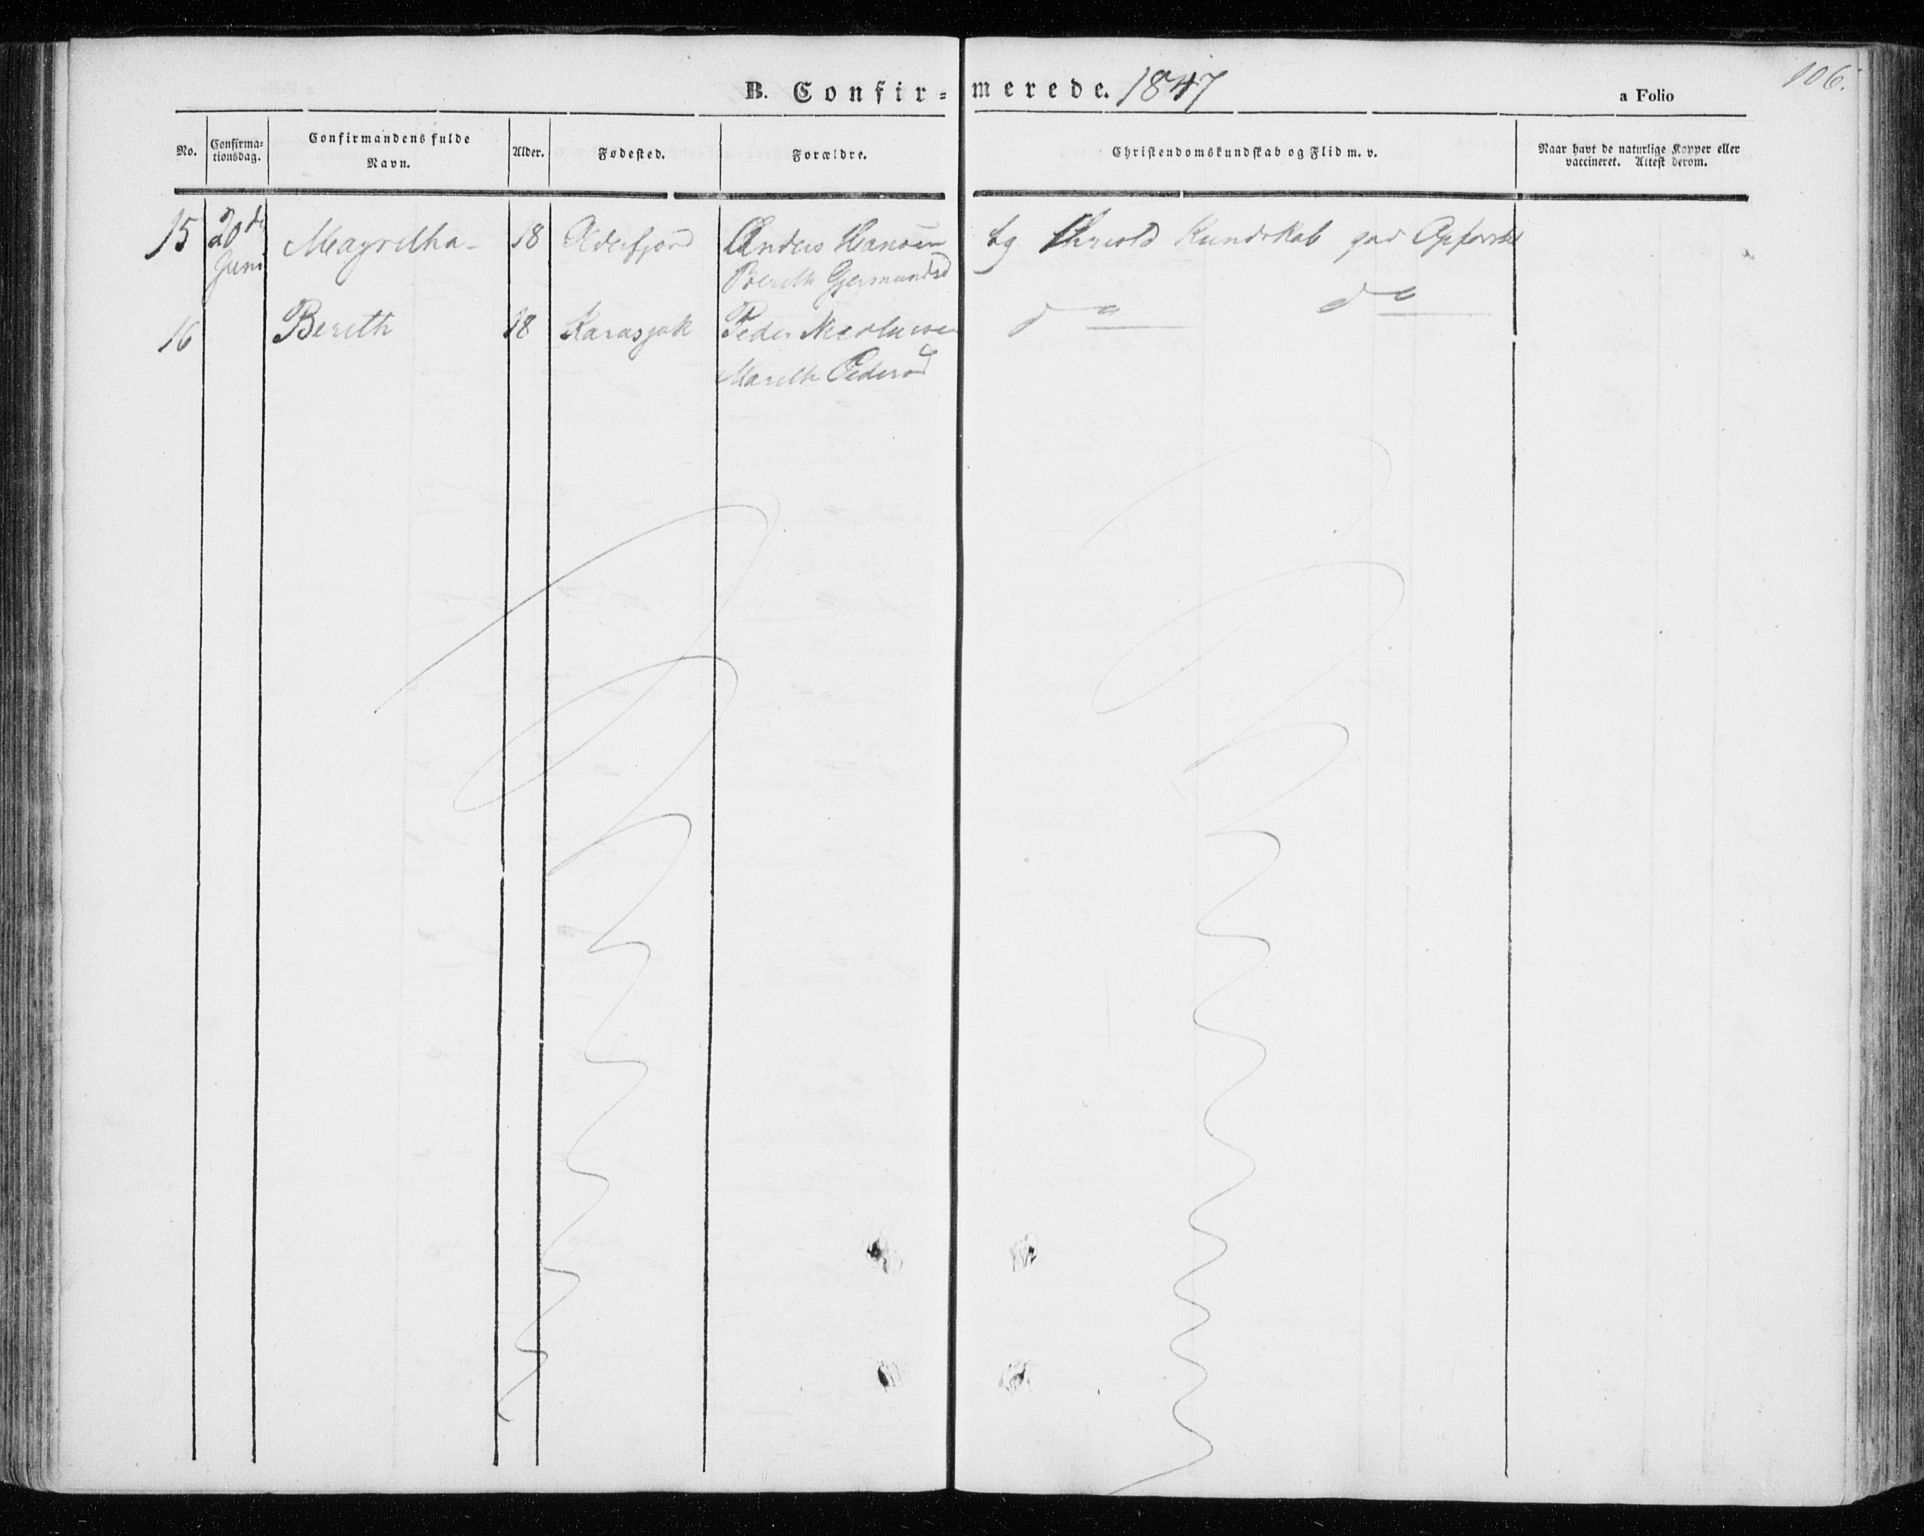 106.
B. Confir=merede. 1847
a Folio
No.
Confirma-
tionsdag.
Confirmandens fulde
Navn.
Alder.
Fødested.
Forældre.
Christendomskundskab og Flid m. v.
Naar havt de naturlige Kopper eller
vaccineret. Attest derom.
15 20de Magretha 18 Anders Hansen Kundskab god Opførsel
Juni Bereth Gjermundsd
16 Bereth 18 Karasjok Peder do do
Mareth Pedersd